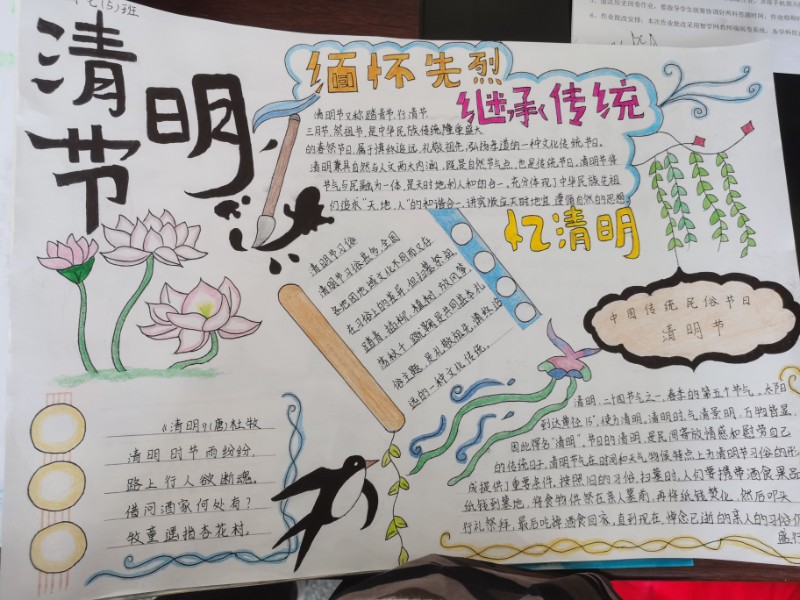 七(5)班
清明节
缅怀先烈
继承传统
忆清明
清明节又称踏青节、行清节、
三月节、祭祖节,是中华民族传统隆重盛大
的春祭节日,属于慎终追远、礼敬祖先、弘扬孝道的一种文化传统节日。
清明兼具自然与人文两大内涵,既是自然节气点,也是传统节日。清明节将
节气与民融为一体,是天时地利人和的合一,充分体现了中华民族先祖
们追求“天、地、人”的和谐合一,讲究顺应天时地宜、遵循自然的思想。
清明节习俗
清明节习俗甚多,全国
各地因地域文化不同而又存
在习俗上的差异,但扫墓祭祖、
踏青、插柳、植树、放风筝、
荡秋千、蹴鞠是共同基本礼
俗主题,是礼敬祖先、慎终追
远的一种文化传统。
中国传统民俗节日
清明节
《清明》(唐)杜牧
清明时节雨纷纷,
路上行人欲断魂。
借问酒家何处有?
牧童遥指杏花村。
清明,二十四节气之一,春季的第五个节气,太阳
到达黄经15°,使为清明,清明时,气清景明,万物皆显,
因此得名“清明”。节日的清明,是民间寄放情感和慰劳自己
的传统日子。清明节气在时间和天气物候特点上为清明节习俗的形
成提供了重要条件,按照旧的习俗,扫墓时,人们要携带酒食果品
纸钱到墓地,将食物供祭在亲人墓前,再将纸钱焚化,然后叩头
行礼祭拜,最后吃掉酒食回家,直到现在,悼念已逝的亲人的习俗仍
盛行